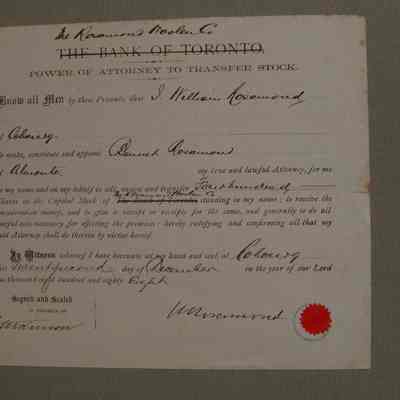 The Rosamond Woolen Co
THE BANK OF TORONTO,
POWER OF ATTORNEY TO TRANSFER STOCK.
Know all Men by these Presents, that I, William Rosamond
Cobourg
make, constitute and appoint Bennett Rosamond
Almonte my true and lawful Attorney, for me
my name and on my behalf to sell, assign and transfer Four hundred
Shares in the Capital Stock of The Bank of Toronto, standing in my name; to receive the
consideration money, and to give a receipt or receipts for the same, and generally to do all
lawful acts necessary for effecting the premises: hereby ratifying and confirming all that my
said Attorney shall do therein by virtue hereof.
In Witness whereof I have hereunto set my hand and seal at Cobourg
twenty second day of December in the year of our Lord
one thousand eight hundred and eighty Eight
Signed and Sealed
IN PRESENCE OF
W Rosamond